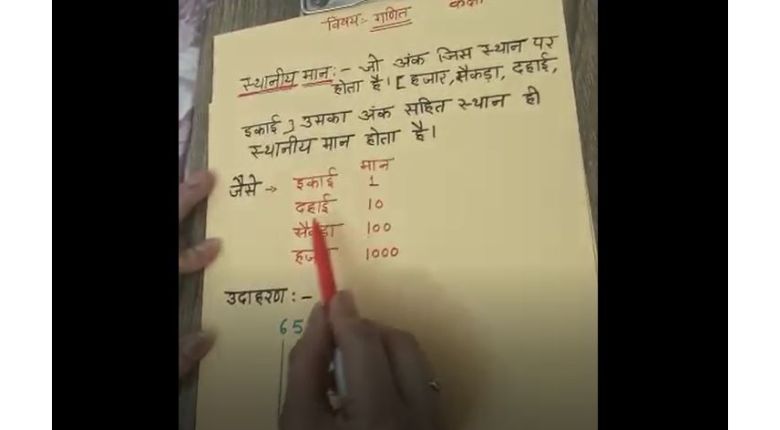 विषय:- गणित कक्षा
स्थानीय मान:- जो अंक जिस स्थान पर
होता है। [हजार, सैकड़ा, दहाई,
इकाई] उसका अंक सहित स्थान ही
स्थानीय मान होता है।
मान
जैसे → इकाई 1
दहाई 10
सैकड़ा 100
हजार 1000
उदाहरण:-
65